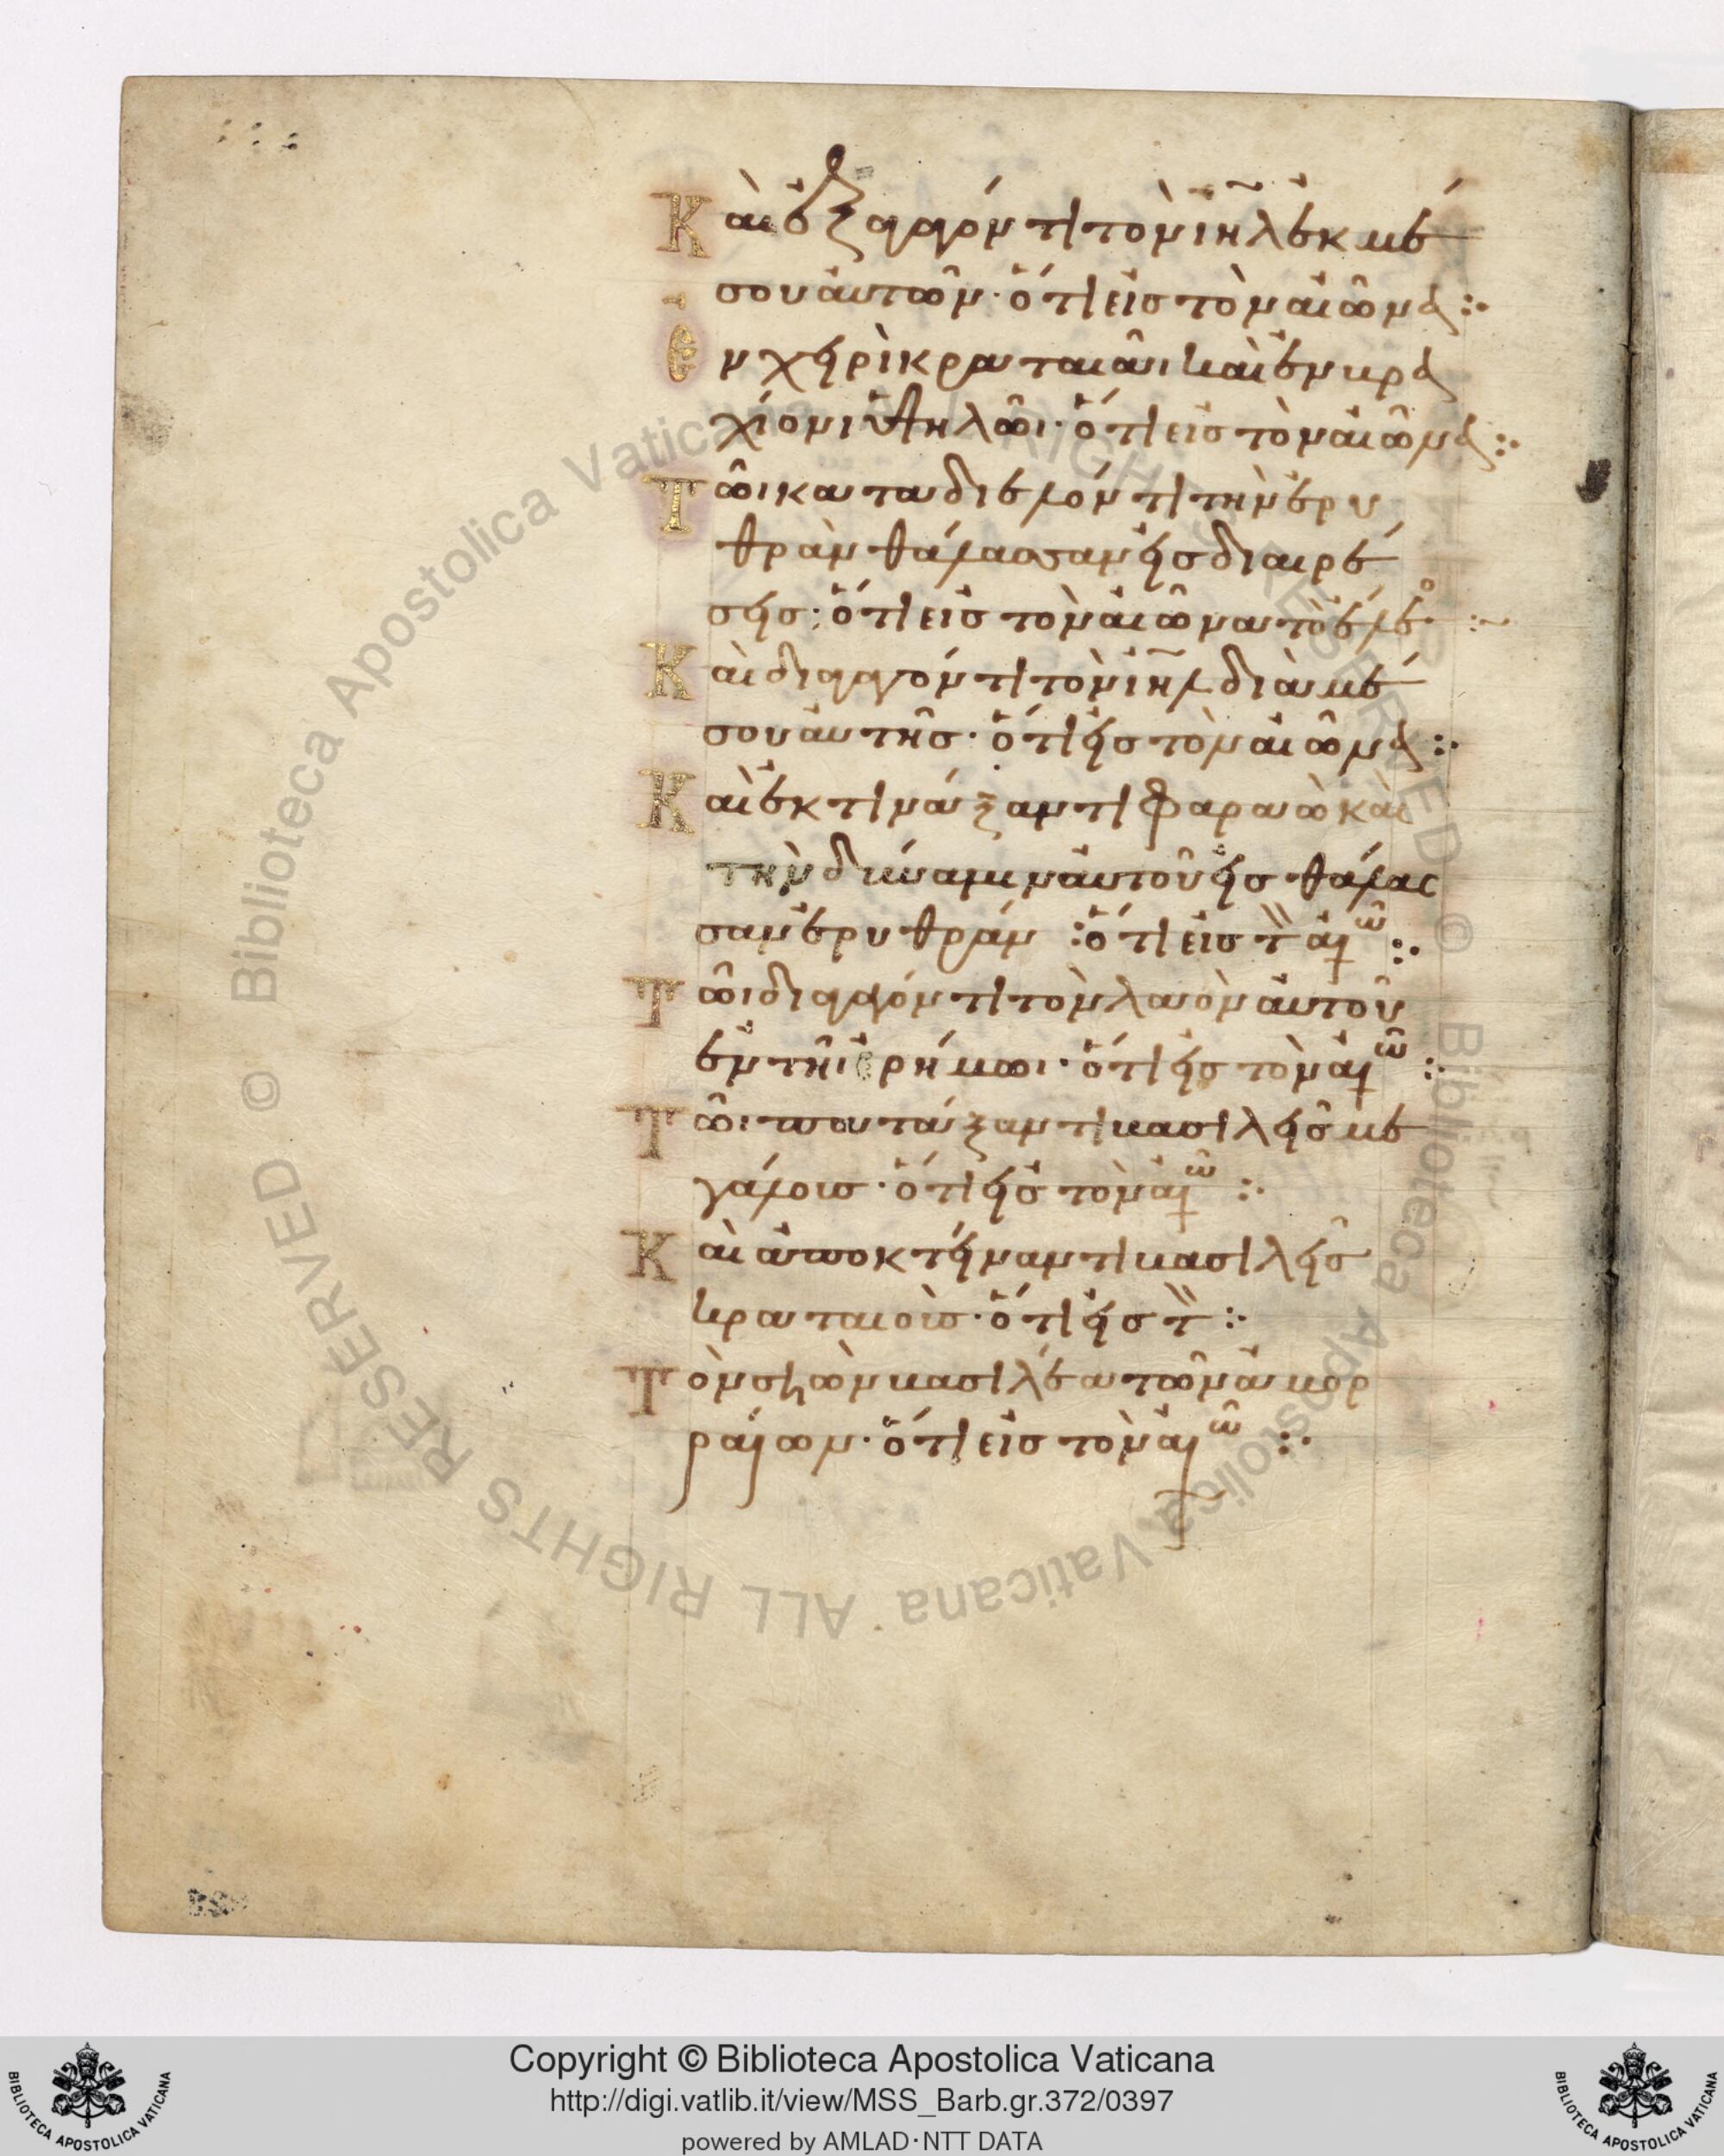 Καὶ ἐξαγαγόντι τὸν ἰηλ ἐκ μέ
σου αὐτῶν· ὅτι εἰς τὸν αἰῶνα :·
Ἐν χειρὶ κραταιᾶι καὶ ἐν βρα
χίονι ὑψηλῶι· ὅτι εἰς τὸν αἰῶνα :·
Τῶι καταδιελόντι τὴν ἐρυ
θρὰν θάλασσαν εἰς διαιρέ
σεις· ὅτι εἰς τὸν αἰῶνα τὸ ἔλεο :~
Καὶ διαγαγόντι τὸν ἰηλ διὰ μέ
σου αὐτῆς· ὅτι εἰς τὸν αἰῶνα :·
Καὶ ἐκτινάξαντι φαραὼ καὶ
τὴν δύναμιν αὐτοῦ εἰς θάλας
σαν ἐρυθράν : ὅτι εἰς τ αἰῶ :·
Τῶι διαγαγόντι τὸν λαὸν αὐτοῦ
ἐν τῆι ἐρήμωι· ὅτι εἰς τὸν αἰῶ :·
Τῶι πατάξαντι βασιλεῖς με
γάλους· ὅτι εἰς τὸν αἰῶ :·
Καὶ ἀποκτείναντι βασιλεῖς
κραταιοὺς· ὅτι εἰς τ :·
Τὸν σηὼν βασιλέα τῶν ἀμορ
ραίων· ὅτι εἰς τὸν αἰῶ :·
Copyright © Biblioteca Apostolica Vaticana
http://digi.vatlib.it/view/MSS_Barb.gr.372/0397
powered by AMLAD·NTT DATA
BIBLIOTECA APOSTOLICA VATICANA
BIBLIOTECA APOSTOLICA VATICANA
© Biblioteca Apostolica Vaticana. ALL RIGHTS RESERVED © Biblioteca Apostolica Vaticana. ALL RIGHTS RESERVED